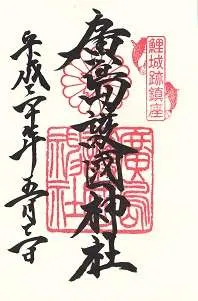 鯉城跡鎮座
廣島護國神社
廣島
護國
神社
平成二十年五月日